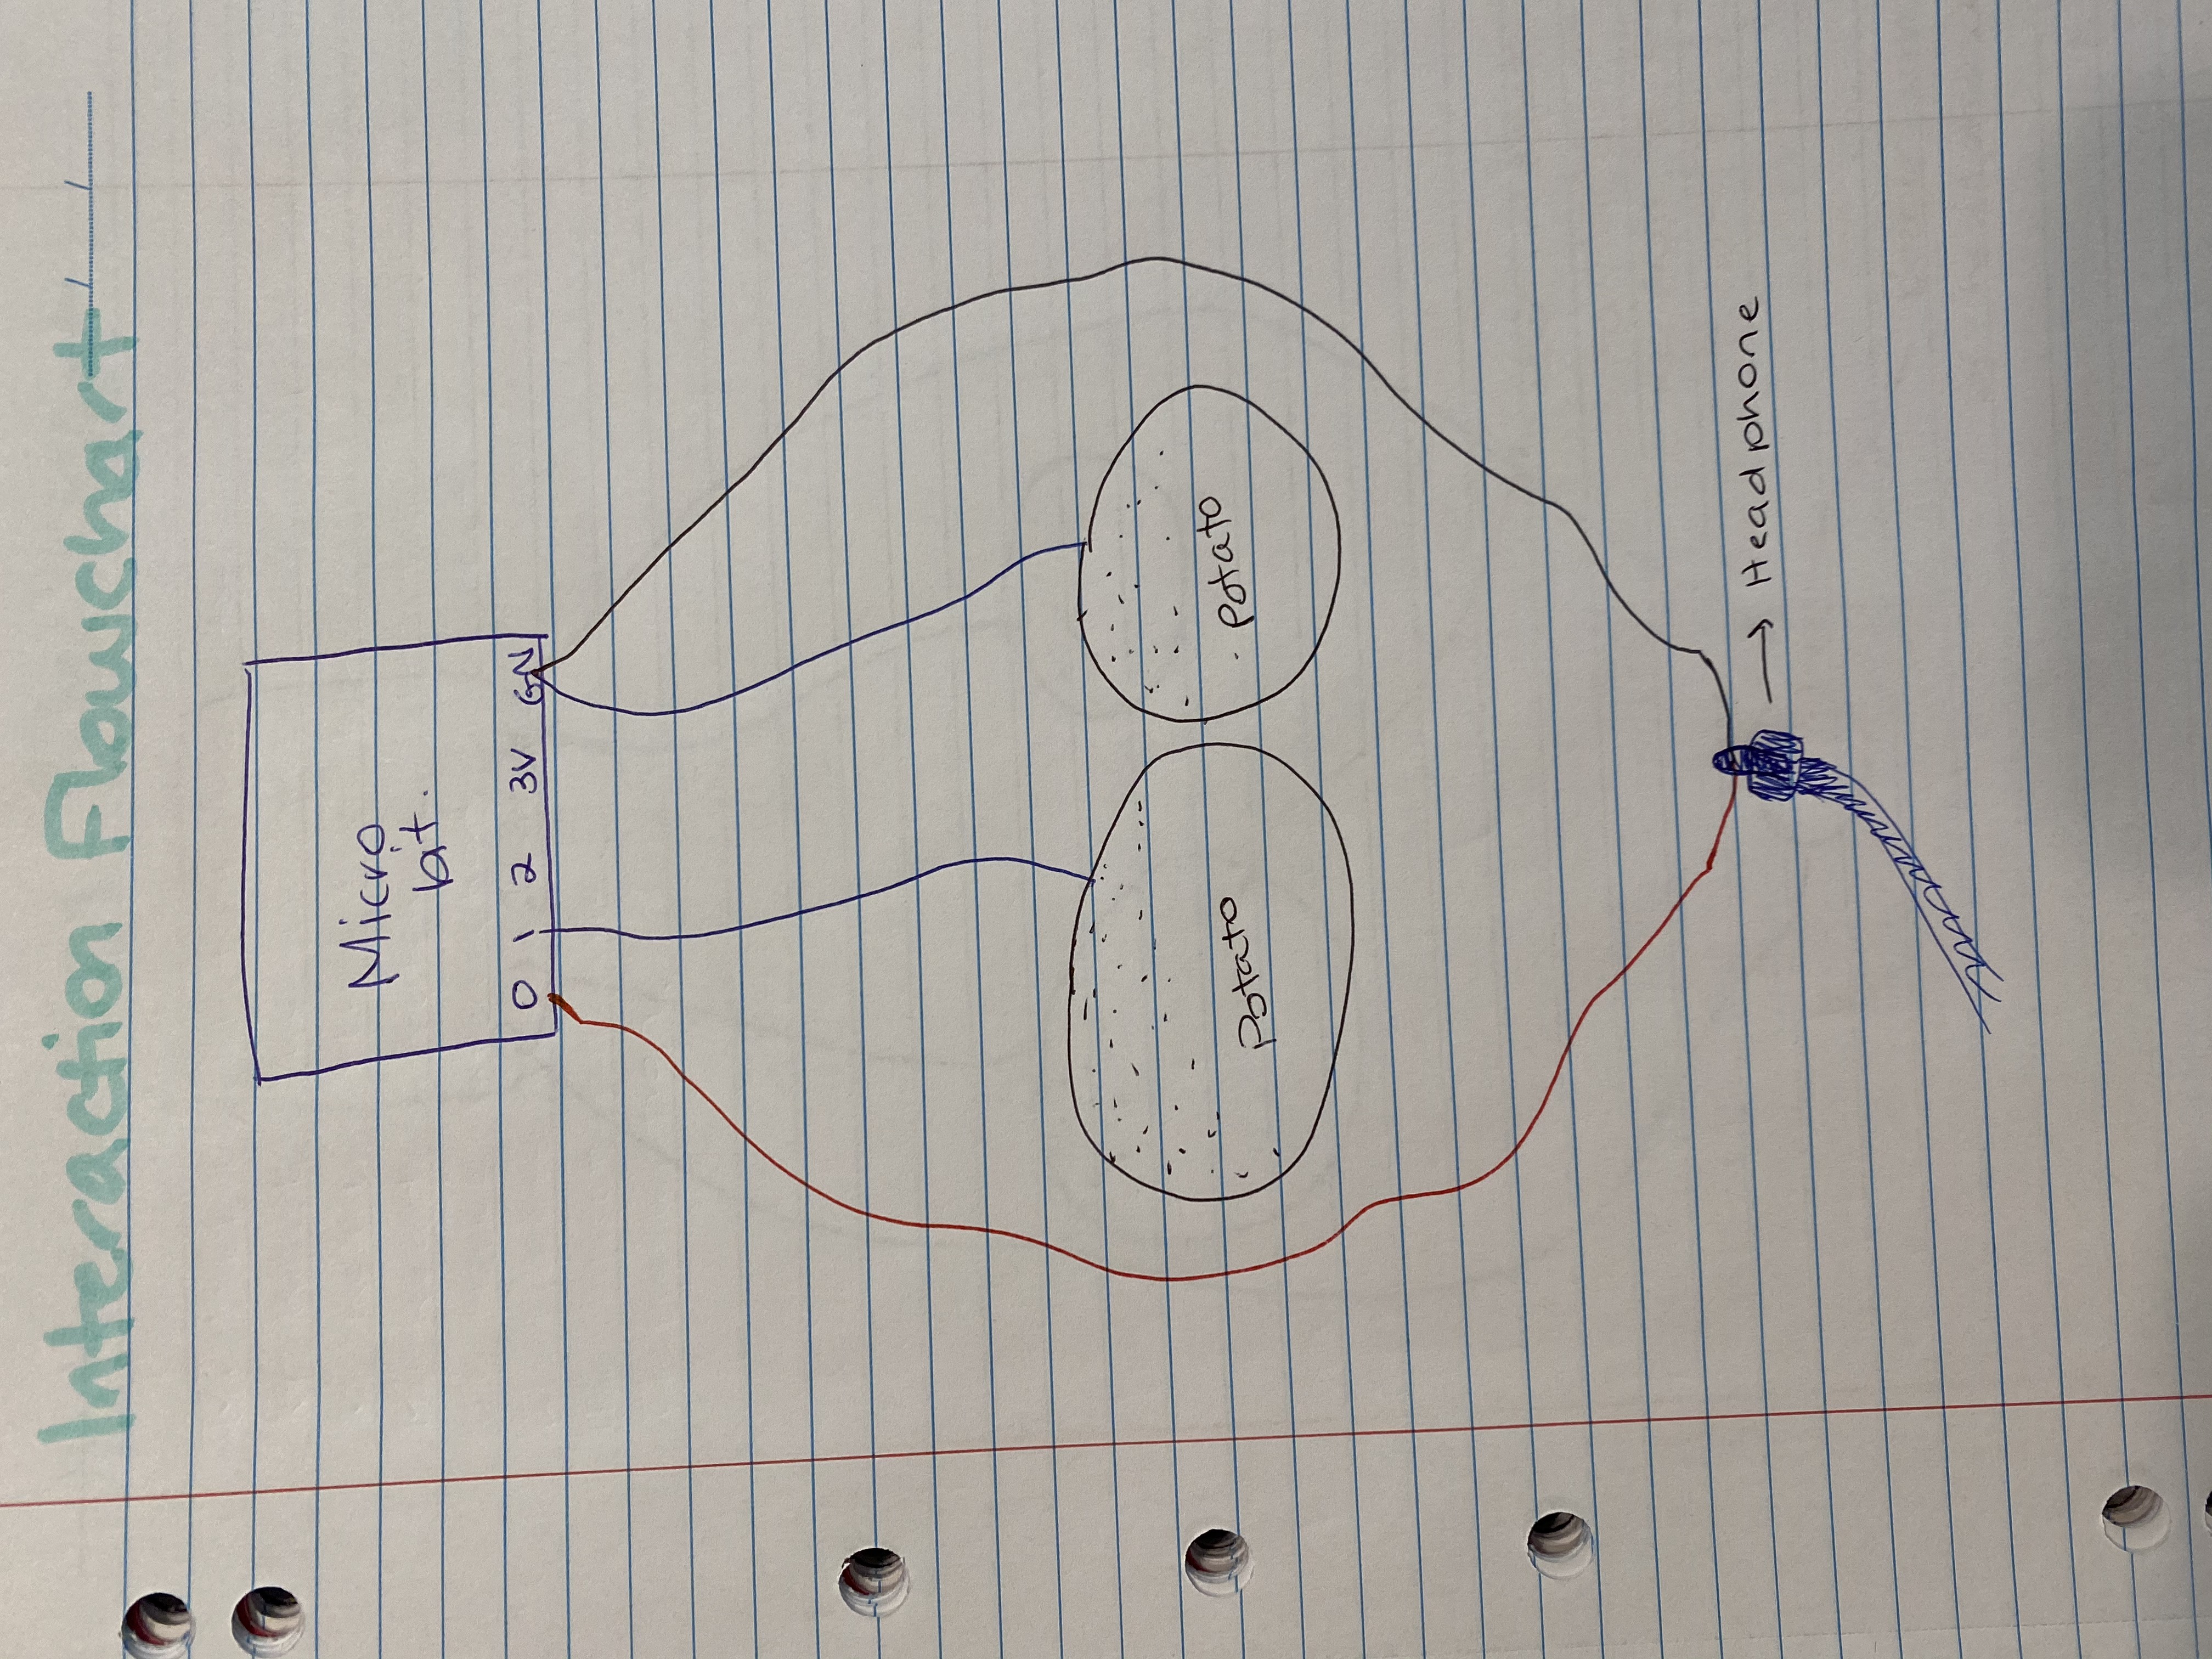 Interaction Flowchart
Micro
bit.
0 1 2 3V GN
Potato
Potato
→ Headphone